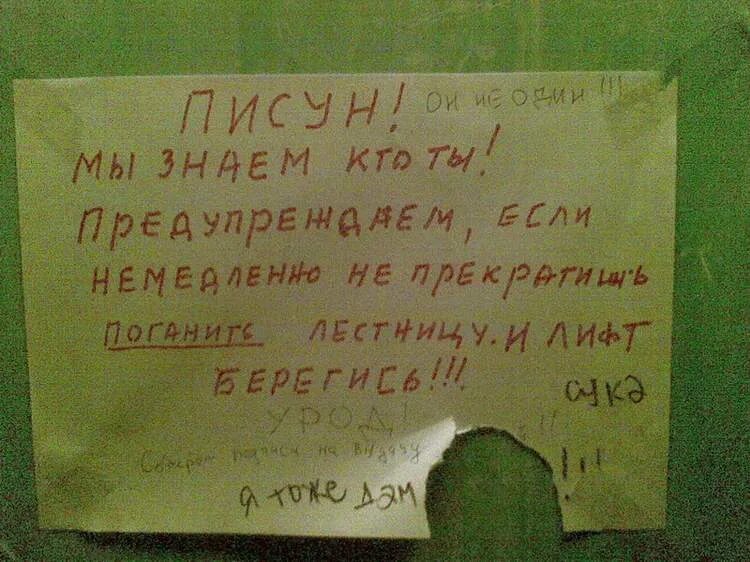 ПИСУН! ОН НЕ ОДИН!!!
МЫ ЗНАЕМ КТО ТЫ!
ПРЕДУПРЕЖДАЕМ, ЕСЛИ
НЕМЕДЛЕННО НЕ ПРЕКРАТИШЬ
ПОГАНИТЬ ЛЕСТНИЦУ. И ЛИФТ
БЕРЕГИСЬ!!!
сукА
УРОД!
на
!!!
я тоже дам